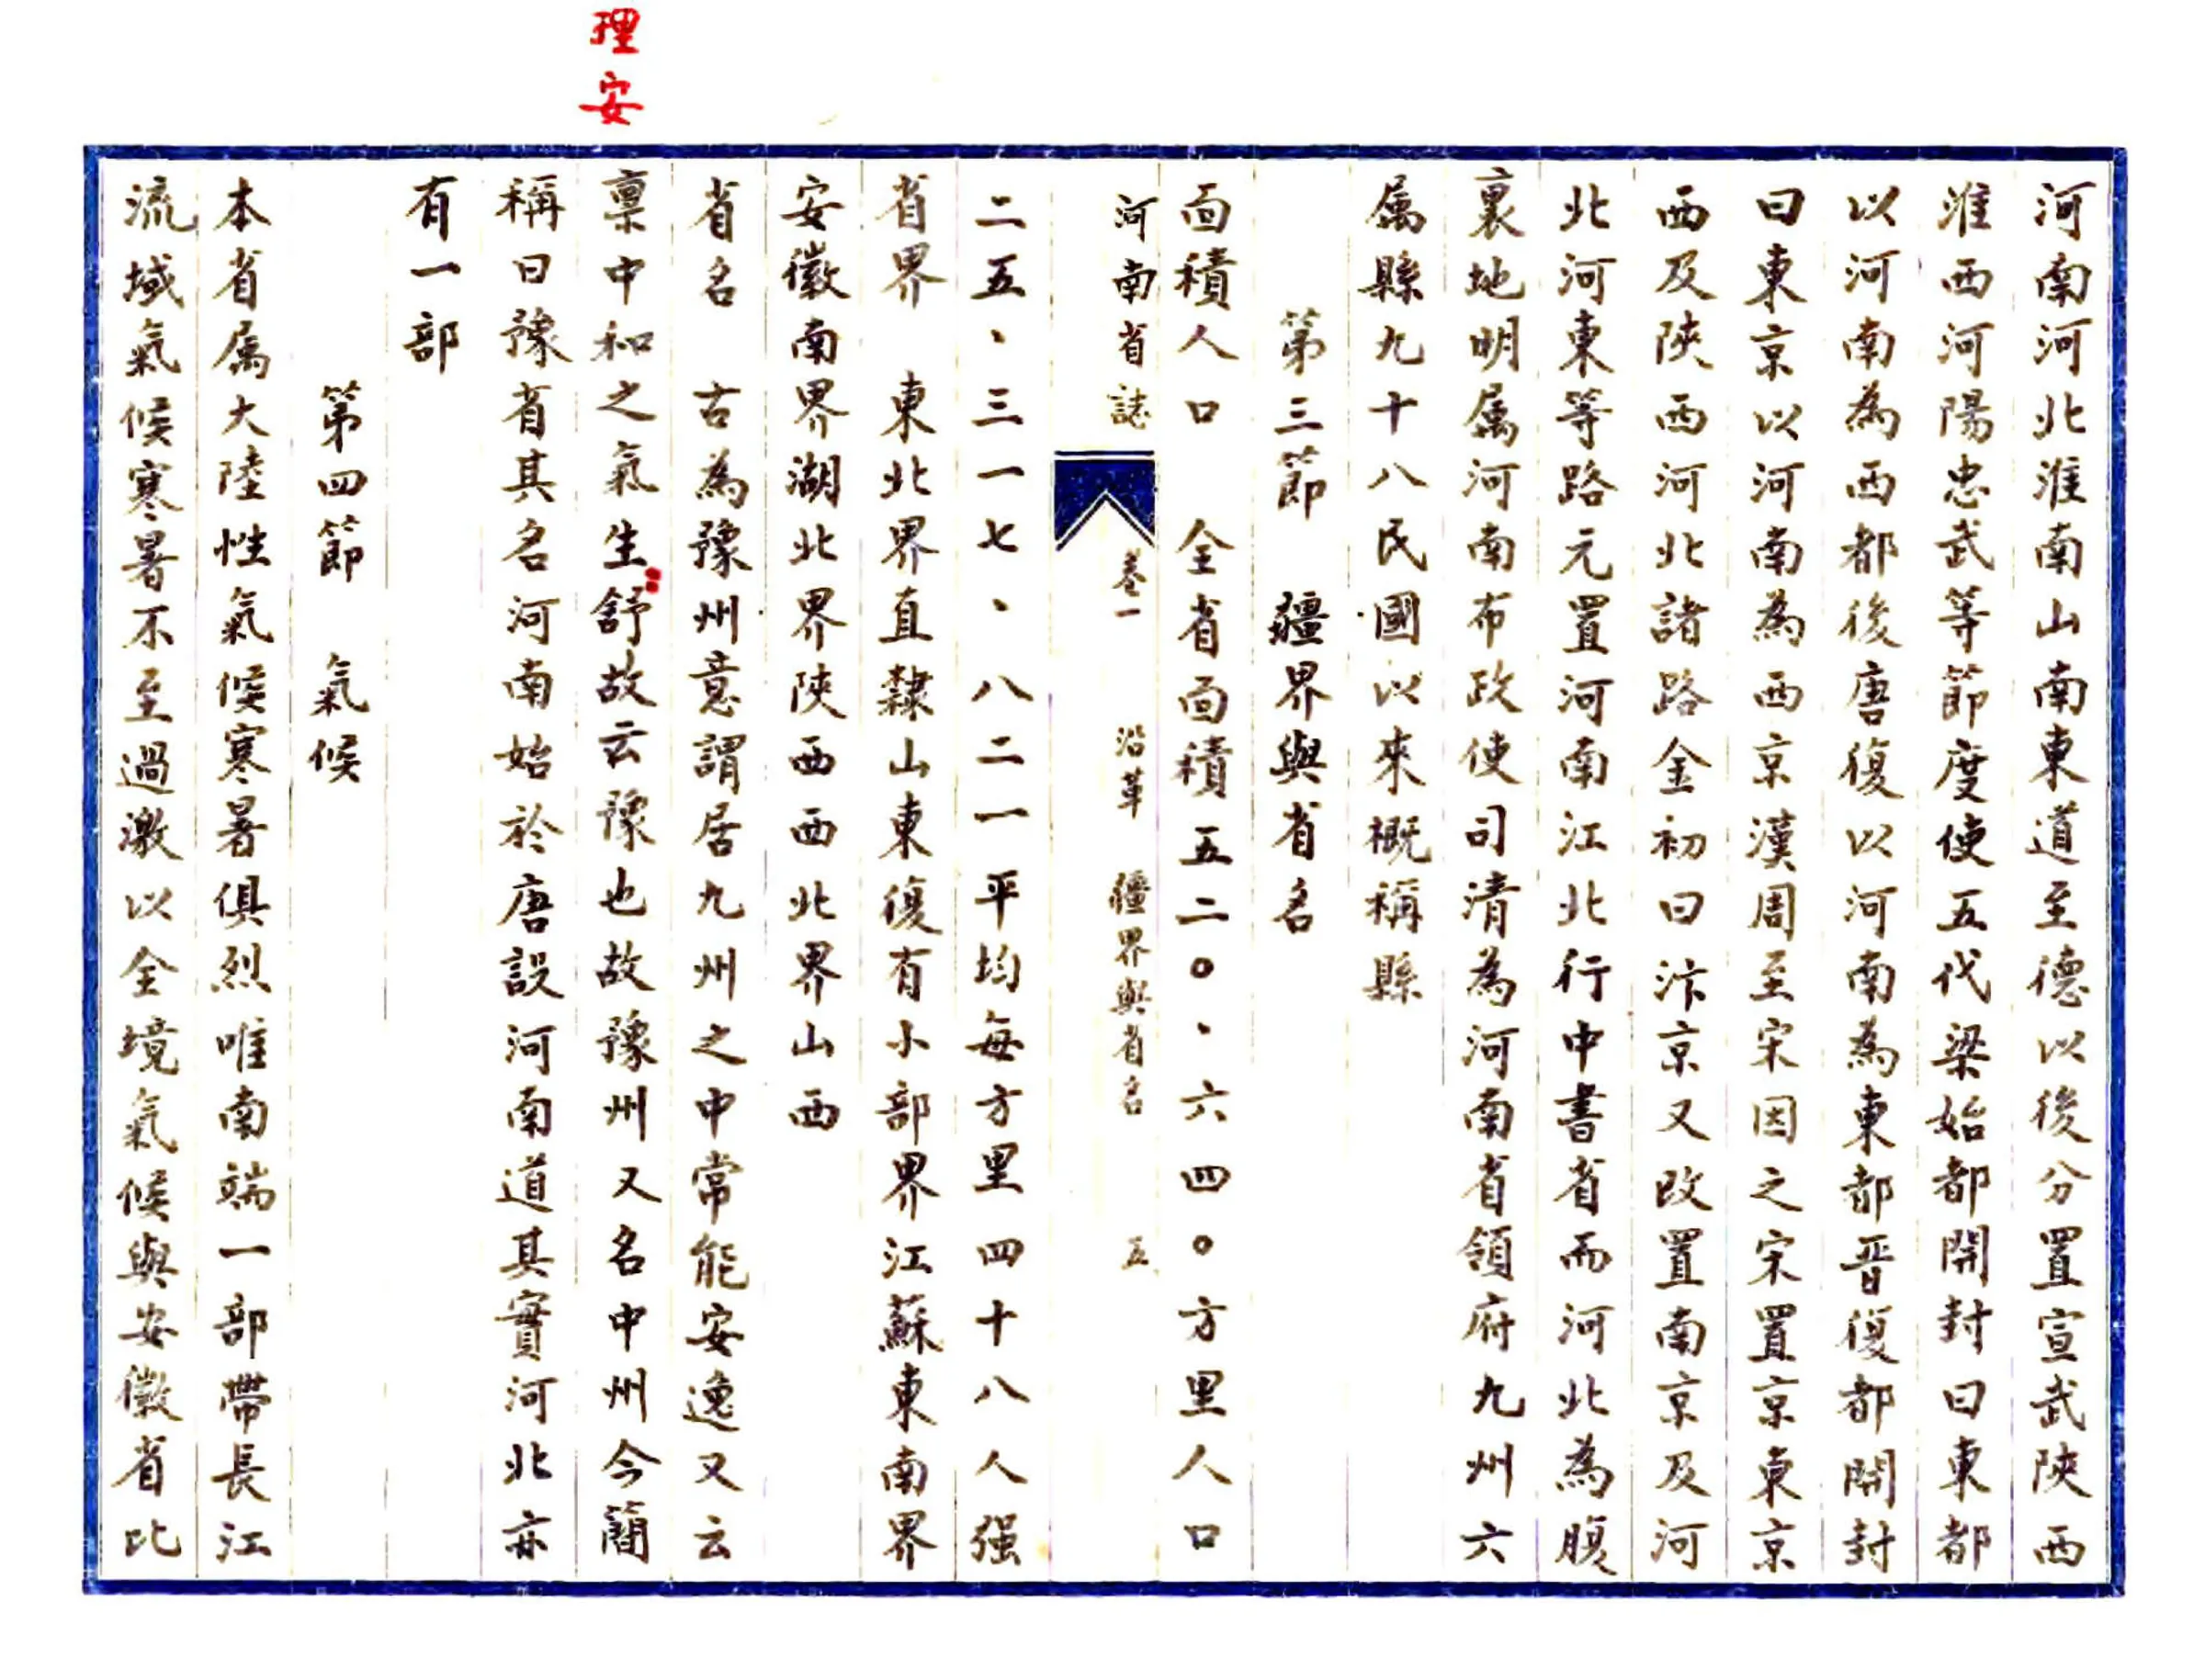 河南河北淮南山南東道至德以後分置宣武陝西
淮西河陽忠武等節度使五代梁始都開封曰東都
以河南為西都後唐復以河南為東都晉復都開封
曰東京以河南為西京漢周至宋因之宋置京東京
西及陝西河北諸路金初曰汴京又改置南京及河
北河東等路元置河南江北行中書省而河北為腹
裏地明属河南布政使司清為河南省領府九州六
属縣九十八民國以來概稱縣
第三節　疆界與省名
面積人口　全省面積五二〇、六四〇方里人口
河南省誌　卷一　沿革　疆界與省名　五
二五、三一七、八二一平均每方里四十八人强
省界　東北界直隸山東復有小部界江蘇東南界
安徽南界湖北界陝西西北界山西
省名　古為豫州意謂居九州之中常能安逸又云
理安
稟中和之氣生舒故云豫也故豫州又名中州今簡
稱曰豫省其名河南始於唐設河南道其實河北亦
有一部
第四節　氣候
本省属大陸性氣候寒暑俱烈唯南端一部帶長江
流域氣候寒暑不至過激以全境氣候與安徽省比